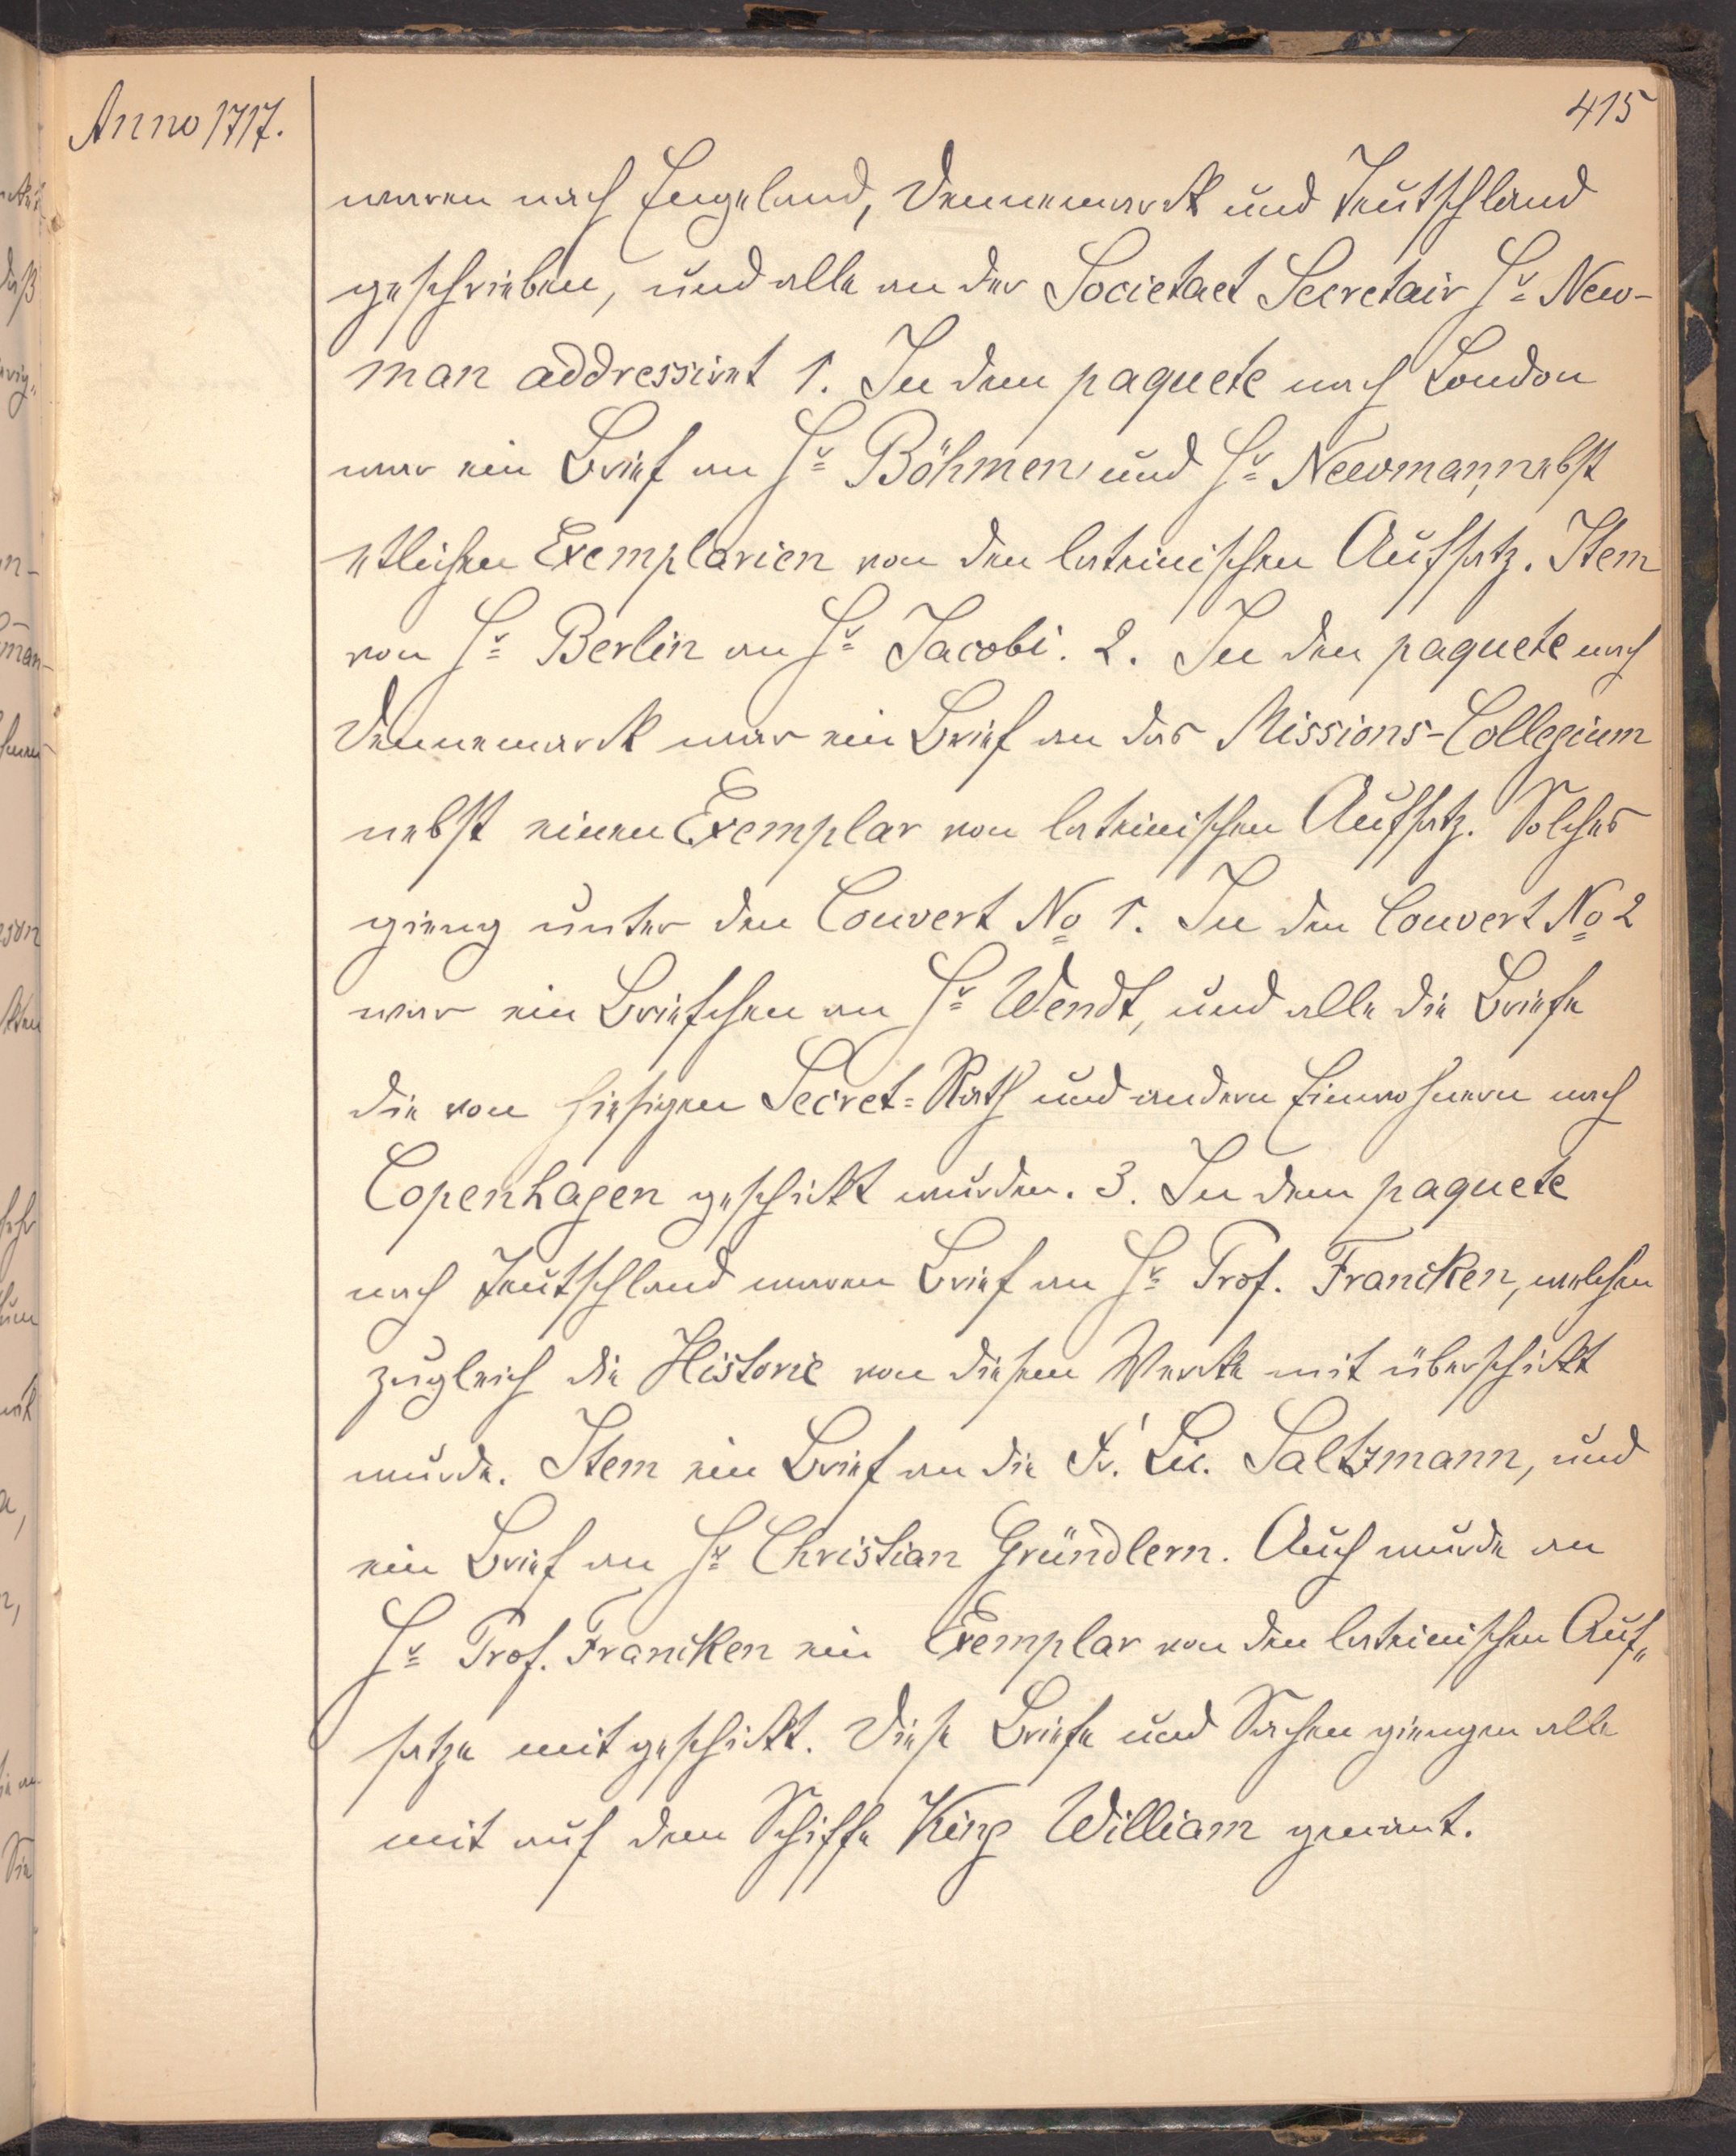 Anno 1717.
415
waren nach Engeland, Dennemarck und Teutschland
geschrieben, und alle an der Societaet Secretair Hr. New-
man addressiret 1. In dem paquete nach London
war ein Brief an Hr. Böhmen und Hr. Newman, nebst
etlichen Exemplarien von den lateinischen Aufsatz. Item
von Hr. Berlin an Hr. Jacobi. 2. In den paquete nach
Dennemarck war ein Brief an das Missions-Collegium
nebst einen Exemplar von lateinischen Aufsatz. Solches
gieng unter den Couvert No 1. In den Couvert No 2
war ein Briefchen an Hr. Wendt, und alle die Briefe
die von hiesigen Secret=Rath und andern Einwohnern nach
Copenhagen geschickt wurden. 3. In dem paquete
nach Teutschland waren Brief an Hr. Prof. Francken, welchen
zugleich die Historie von diesem Wercke mit überschickt
wurde. Item ein Brief an die Fr. Lic. Saltzmann, und
ein Brief an Hr. Christian Gründlern. Auch wurde an
Hr. Prof. Francken ein Exemplar von den lateinischen Auf„
satze mit geschickt. Diese Briefe und Sachen giengen alle
mit auf dem Schiffe King William genant.